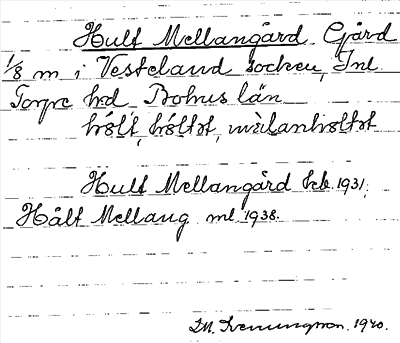 Hult Mellangård Gård
1/8 m i Vesteland socken, Inl
Torpe hd Bohus län
hólt, hóltət, mèlanhòltət
Hult Mellangård kb. 1931.
Hålt Mellang ml 1938.
1940.